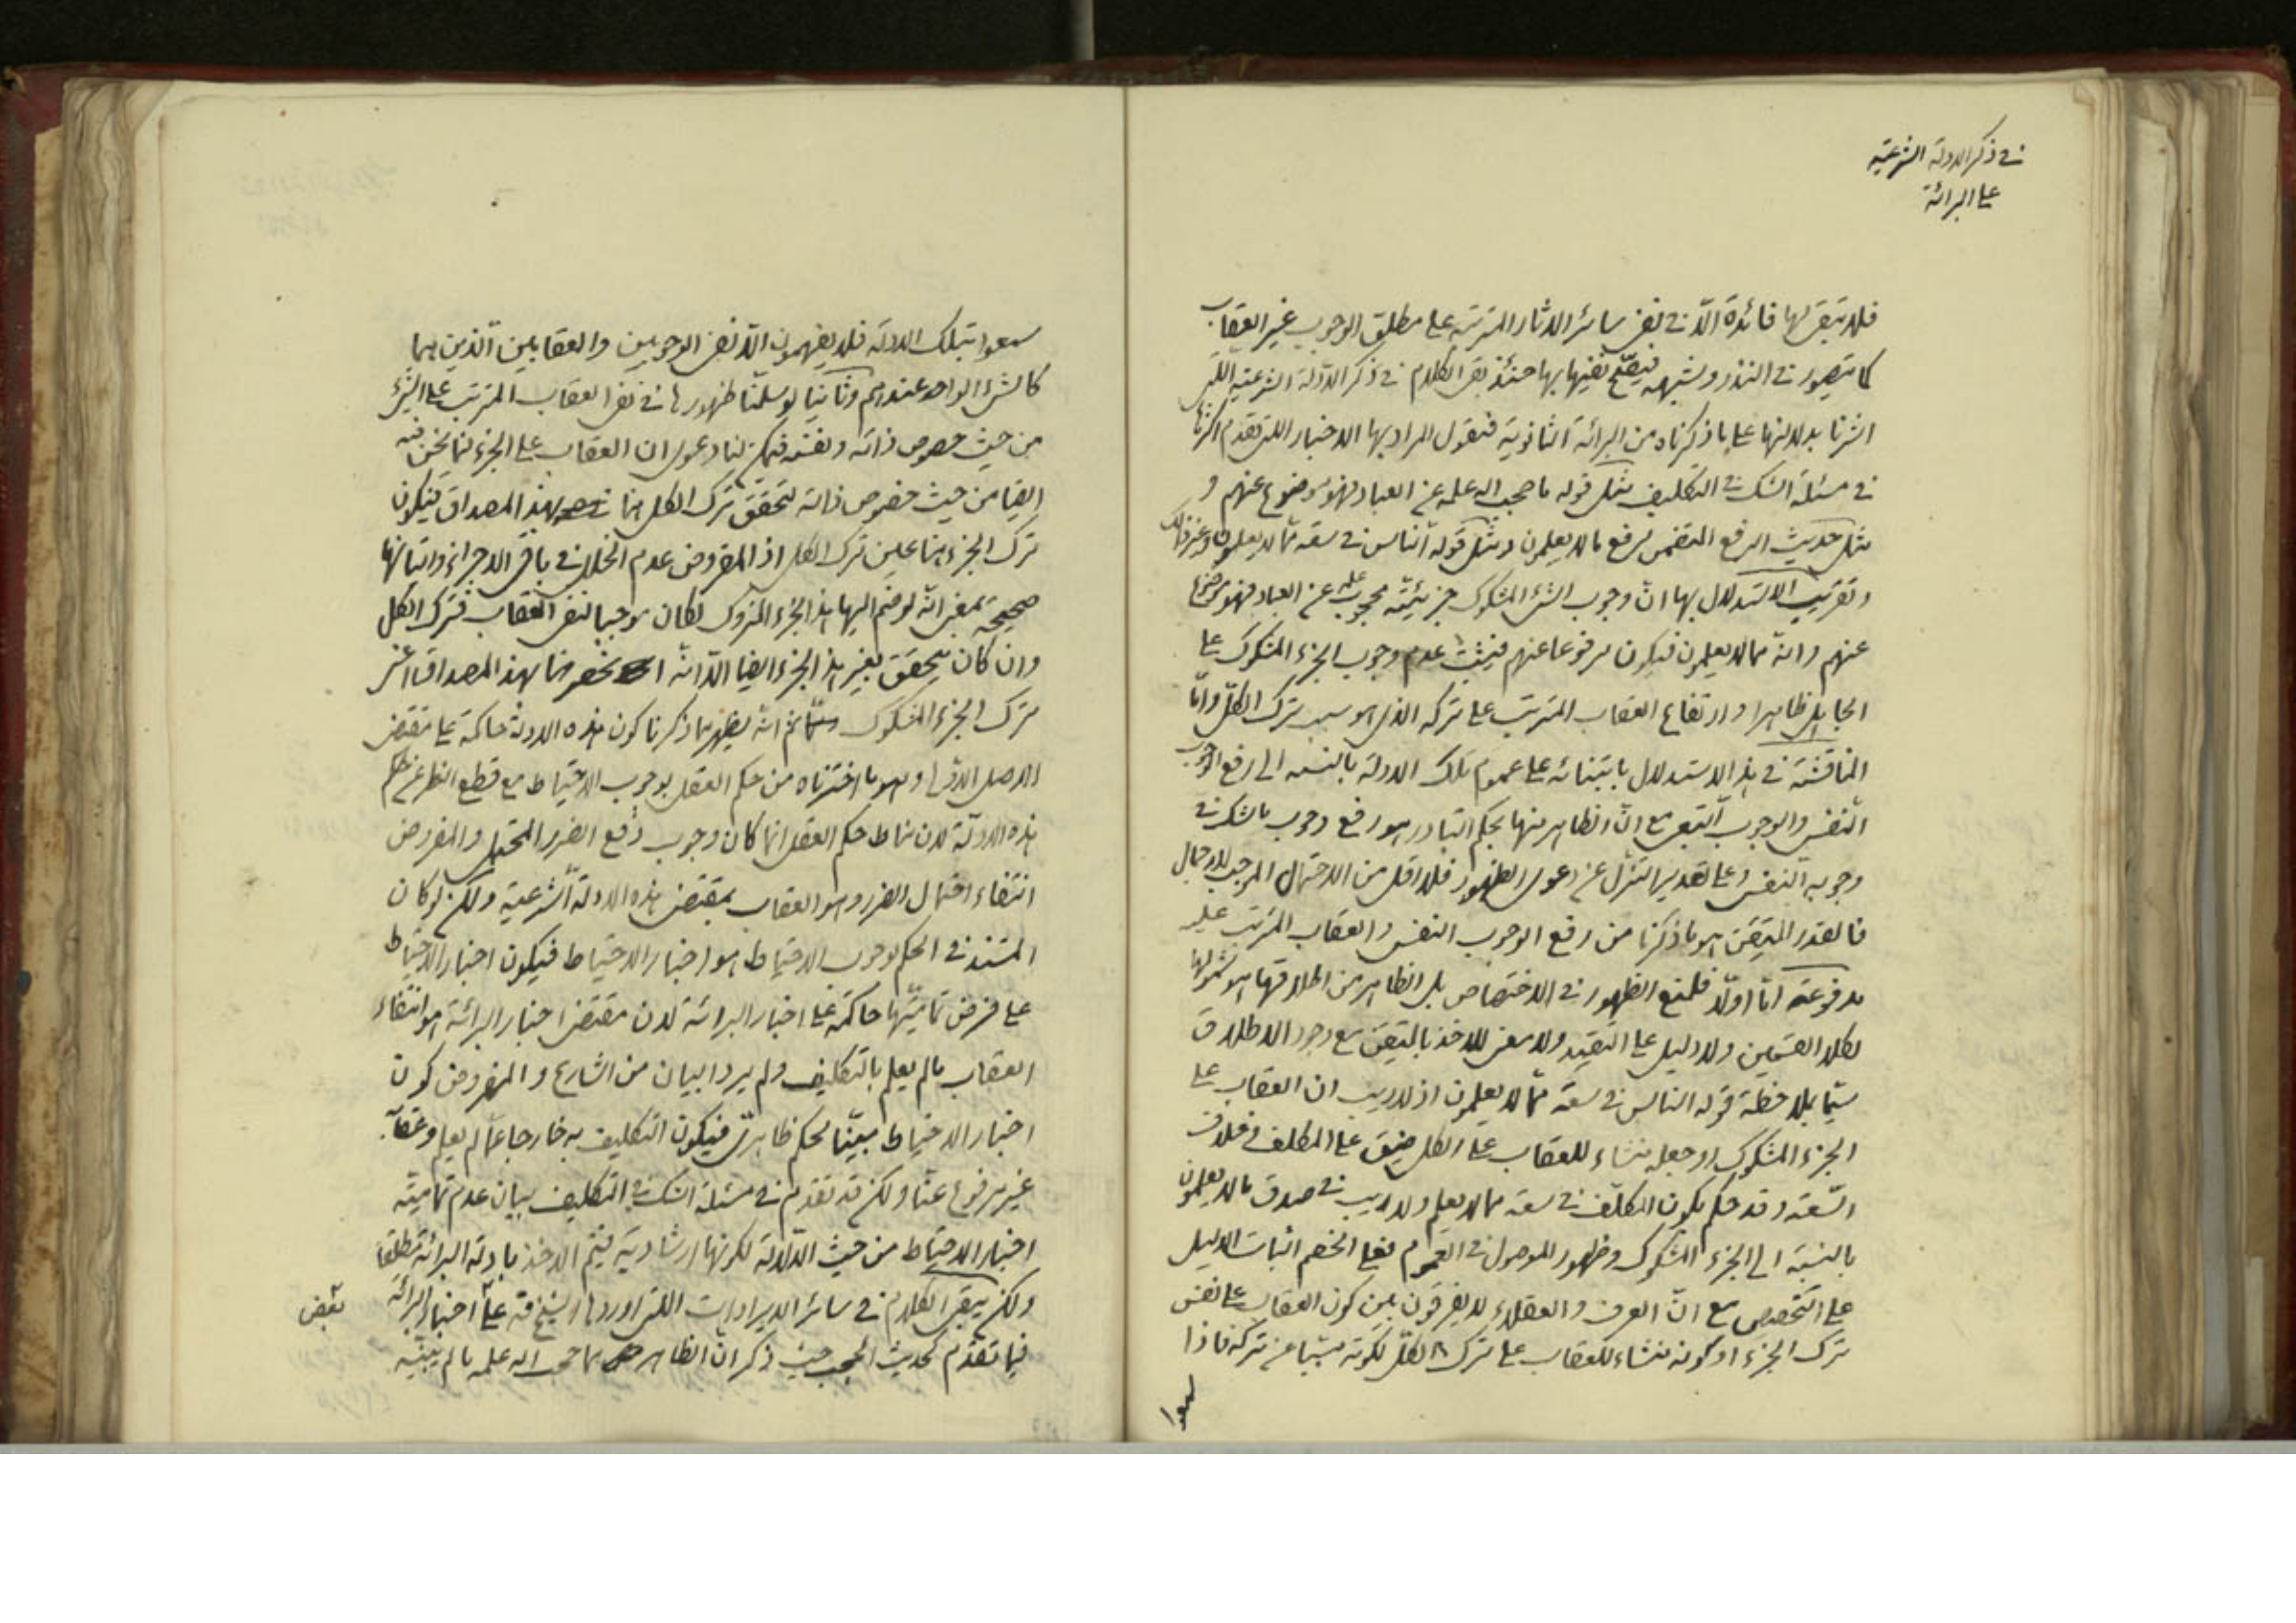 في ذكر الادلة الشرعية
على البرائة
فلا يبقى لها فائدة الا في نفى سائر الاثار المترتبة على مطلق الوجوب غير العقاب
كما يتصور في النذر وشبهه فيصح نفيها بها حينئذ بقى الكلام في ذكر الادلة الشرعية التى
اشرنا بدلالتها على ما ذكرناه من البرائة الثانوية فنقول المراد بها الاخبار التى تقدم اكثرها
في مسئلة الشك في التكليف مثل قوله ما حجب الله علمه عن العباد فهو موضوع عنهم و
مثل حديث الرفع المتضمن لرفع ما لا يعلمون ومثل قوله الناس في سعة مما لا يعلمون وغير ذلك
وتقريب الاستدلال بها ان وجوب الشئ المشكوك جزئيته محجوب علمه عن العباد فهو موضوع
عنهم وانه مما لا يعلمون فيكون مرفوعا عنهم فيثبت عدم وجوب الجزء المشكوك على
الجاهل ظاهرا وارتفاع العقاب المترتب على تركه الذى هو سبب ترك الكل واما
المناقشة في هذا الاستدلال بابتنائه على عموم تلك الادلة بالنسبة الى رفع الوجوب
النفسى والوجوب التبعى مع ان الظاهر منها بحكم التبادر هو رفع وجوب ما شك في
وجوبه النفسى وعلى تقدير التنزل عن دعوى الظهور فلا اقل من الاحتمال الموجب للاجمال
فالقدر المتيقن هو ما ذكرنا من رفع الوجوب النفسى والعقاب المترتب عليه
مدفوعة اما اولا فلمنع الظهور في الاختصاص بل الظاهر من اطلاقها هو شمولها
لكلا القسمين ولا دليل على التقييد ولا معنى للاخذ بالمتيقن مع وجود الاطلاق
سيما بملاحظة قوله الناس في سعة مما لا يعلمون اذ لا ريب ان العقاب على
الجزء المشكوك او جعله منشاء للعقاب على الكل ضيق على المكلف في خلاف
السعة وقد حكم بكون المكلف في سعة مما لا يعلم ولا ريب في صدق ما لا يعلمون
بالنسبة الى الجزء المشكوك وظهور الموصول في العموم فعلى الخصم اثبات الدليل
على التخصيص مع ان العرف والعقلاء لا يفرقون بين كون العقاب على نفس
ترك الجزء او كونه منشاء للعقاب على ترك الكل لكونه مسببا عن تركه فاذا
سمعوا
سمعوا بتلك الادلة فلا يفهمون الا نفى الوجوبين والعقابين الذين هما
كالشئ الواحد عندهم وثانيا لو سلمنا ظهورها في نفى العقاب المترتب على الشئ
من حيث خصوص ذاته ونفسه فيمكن لنا دعوى ان العقاب على الجزء فيما نحن فيه
ايضا من حيث خصوص ذاته لتحقق ترك الكل هنا بهذا المصداق فيكون
ترك الجزء هنا عين ترك الكل اذ المفروض عدم الخلل في باقى الاجزاء واتيانها
صحيحة بمعنى انه لو ضم اليها هذا الجزء المتروك لكان موجبا لنفى العقاب فترك الكل
وان كان يتحقق بغير هذا الجزء ايضا الا انه انحصر هنا بهذا المصداق اعنى
ترك الجزء المشكوك ثم انه يظهر مما ذكرنا كون هذه الادلة حاكمة على مقتضى
الاصل الاولى وهو ما اخترناه من حكم العقل بوجوب الاحتياط مع قطع النظر عن حكم
هذه الادلة لان مناط حكم العقل انما كان وجوب دفع الضرر المحتمل والمفروض
انتفاء احتمال الضرر وهو العقاب بمقتضى هذه الادلة الشرعية ولكن لو كان
المستند في الحكم بوجوب الاحتياط هو اخبار الاحتياط فيكون اخبار الاحتياط
على فرض تماميتها حاكمة على اخبار البرائة لان مقتضى اخبار البرائة هو انتفاء
العقاب ما لم يعلم بالتكليف ولم يرد البيان من الشارع والمفروض كون
اخبار الاحتياط مبينا لحكم ظاهرى فيكون التكليف به خارجا عما لم يعلم وعقابه
غير مرفوع عنا ولكن قد تقدم في مسئلة الشك في التكليف بيان عدم تمامية
اخبار الاحتياط من حيث الدلالة لكونها ارشادية فيتم الاخذ بادلة البرائة مطلقا
ولكن يبقى الكلام في سائر الايرادات التى اوردها الشيخ قه على اخبار البرائة
فيما تقدم كحديث الحجب حيث ذكر ان الظاهر مما حجب الله علمه ما لم يبينه